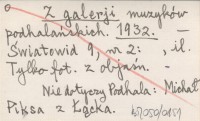 Z galerji muzyków
podhalańskich. 1932. –
Światowid 9, nr 2: , il.
Tylko fot. z objaśn. –
Nie dotyczy Podhala: Michał
Piksa z Łącka.